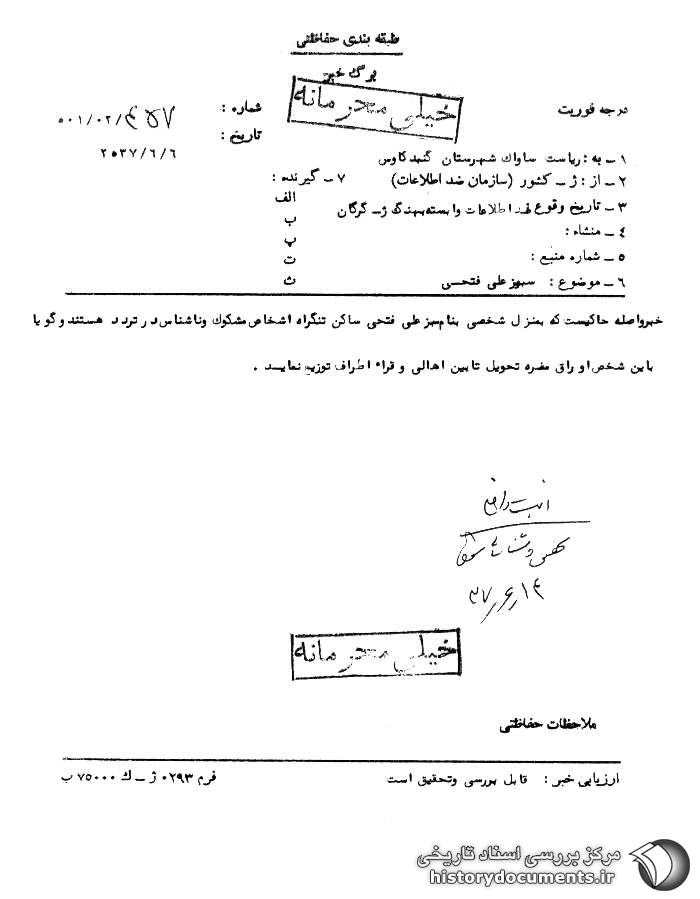 طبقه بندی حفاظتی
برگ خبر
خیلی محرمانه
درجه فوریت
شماره : ۵۰۱/۰۲/۴۵۷
تاریخ : ۲۵۳۷/۶/۶
۱ ـ به : ریاست ساواک شهرستان گنبدکاوس
۲ ـ از : ژ ـ کشور (سازمان ضد اطلاعات)
۳ ـ تاریخ وقوع ضد اطلاعات وابسته بهنگ ژ ـ گرگان
۴ ـ منشاء :
۵ ـ شماره منبع :
۶ ـ موضوع : سبزعلی فتحی
۷ ـ گیرنده :
الف
ب
پ
ت
ث
خبرواصله حاکیست که بمنزل شخصی بنام سبزعلی فتحی ساکن تنگراه اشخاص مشکوک وناشناس در تردد هستند وگویا
باین شخص اوراق مضره تحویل تا بین اهالی و قراء اطراف توزیع نماید .
۳۷/۶/۱۴
خیلی محرمانه
ملاحظات حفاظتی
ارزیابی خبر : قابل بررسی وتحقیق است
فرم ۰۲۹۳ ژ ـ ک ۷۵۰۰۰ ب
مرکز بررسی اسناد تاریخی
historydocuments.ir